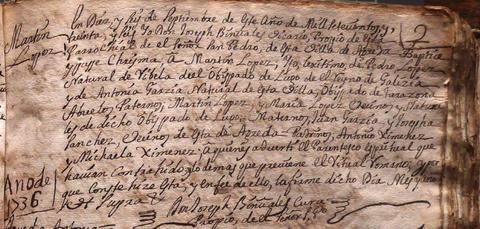 Martin
Lopez
En Diez, y seis de Septiembre de este Año de Mil Setecientos, y
treinta, y seis Yo Dn Joseph Vicario, Propio de esta
Parrochial de el Señor San Pedro, de esta Villa de Agreda Baptize
y puse Chrisma, A Martin Lopez, Yjo lexitimo, de Pedro Lopez
Natural de deel Obispado de Lugo de el Reyno de Galicia
y de Antonia Garzia, Natural de esta Villa, Obispado de Tarazona
Abuelos, Paternos, Martin Lopez, y Maria Lopez Vecinos, y Natura
les de dicho Obispado de Lugo. Maternos, Juan Garzia, y Josepha
Sanchez, Vecinos, de esta de Agreda = Padrino, Antonio Ximenez
y Michaela Ximenez, A quienes adverti el Parentesco espiritual que
havian Contrahido, y lo demas que previene el Ritual Romano, y para
que Conste hize esta, y enfee de ello, la firme dicho Dia Mes, y Año
Vt Supra
Dn Joseph Cura
Propio, de el Señor
Año de
1736